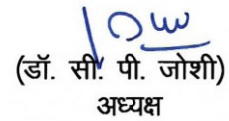 (डॉ. सी. पी. जोशी)
अध्यक्ष